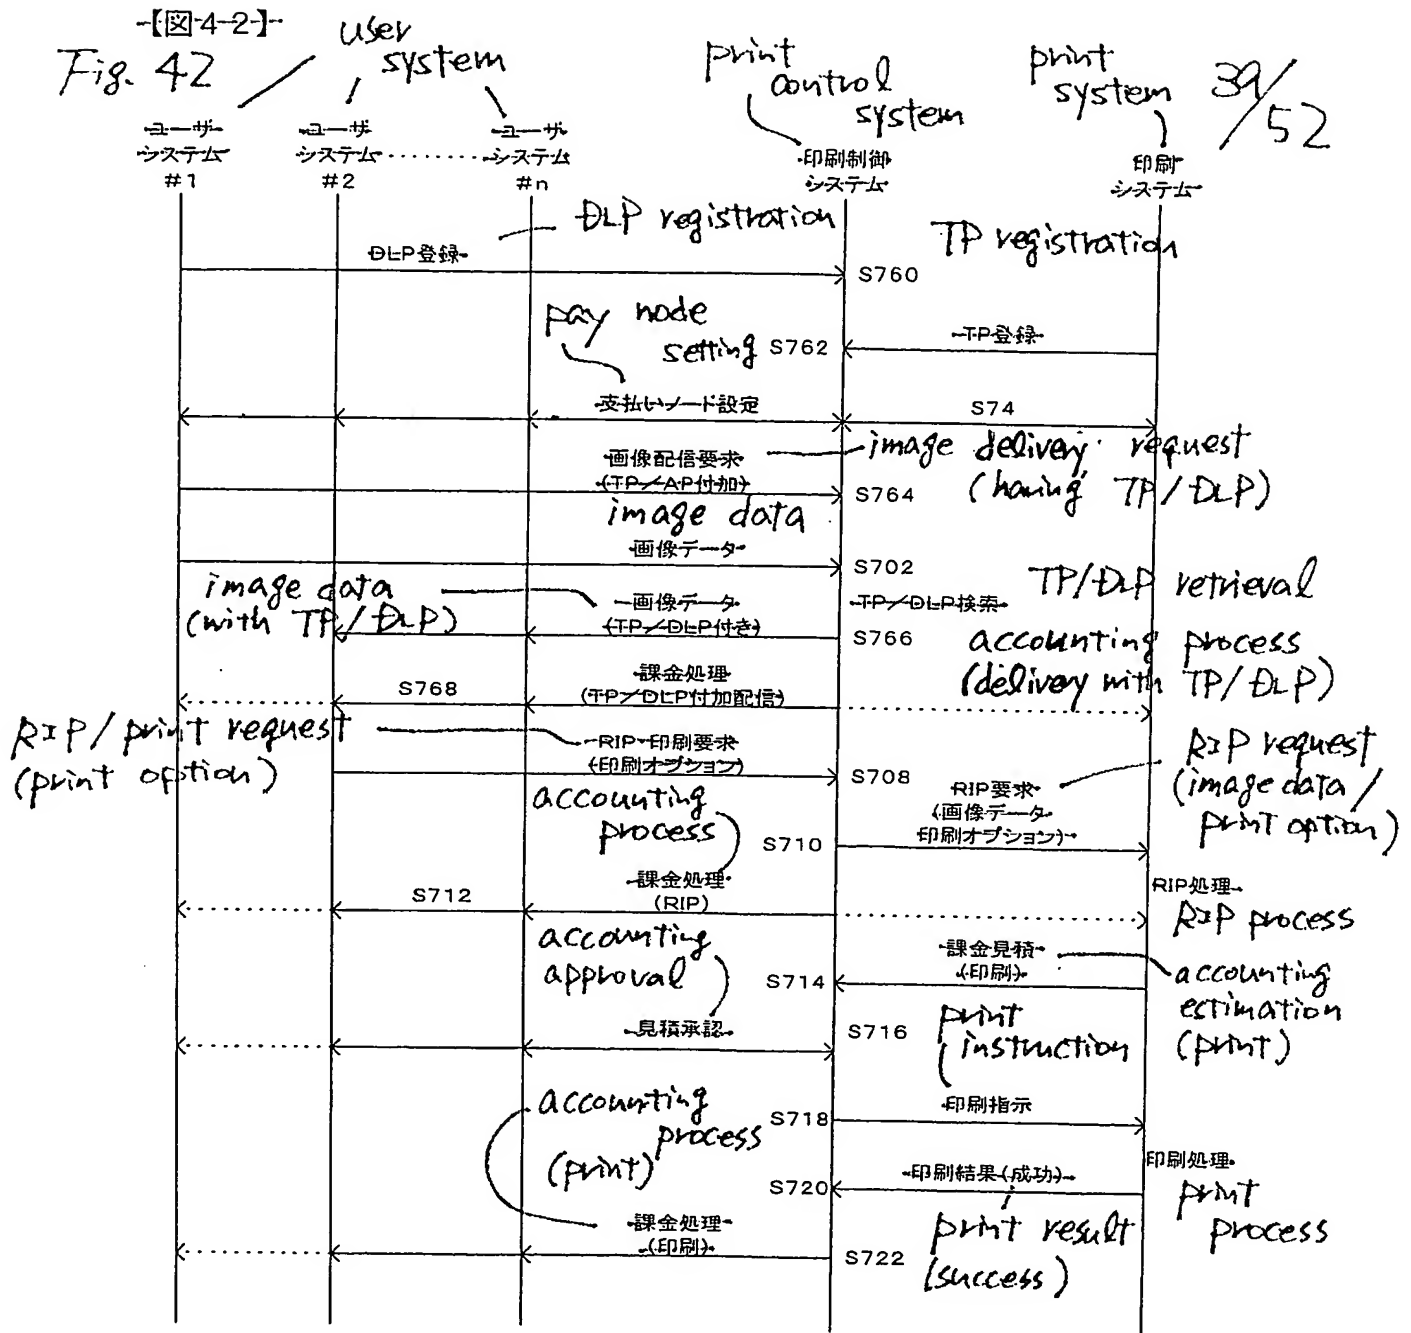 【図42】
Fig. 42
user
system
print
control
system
print
system
39/52
ユーザ
システム
#1
ユーザ
システム
#2
‥‥‥‥
ユーザ
システム
#n
印刷制御
システム
印刷
システム
DLP registration
TP registration
DLP登録
S760
pay node
setting
S762
TP登録
支払いノード設定
S74
画像配信要求
(TP/AP付加)
image delivery request
(having TP/DLP)
S764
image data
画像データ
S702
image data
(with TP/DLP)
画像データ
(TP/DLP付き)
TP/DLP検索
TP/DLP retrieval
S766
accounting process
(delivery with TP/DLP)
課金処理
(TP/DLP付加配信)
S768
RIP/print request
(print option)
RIP・印刷要求
(印刷オプション)
S708
RIP要求
(画像データ
印刷オプション)
RIP request
(image data/
print option)
accounting
process
S710
課金処理
(RIP)
S712
RIP処理
RIP process
accounting
approval
S714
課金見積
(印刷)
accounting
estimation
(print)
見積承認
S716
print
instruction
accounting
process
(print)
S718
印刷指示
印刷処理
S720
印刷結果(成功)
print
process
課金処理
(印刷)
S722
print result
(success)